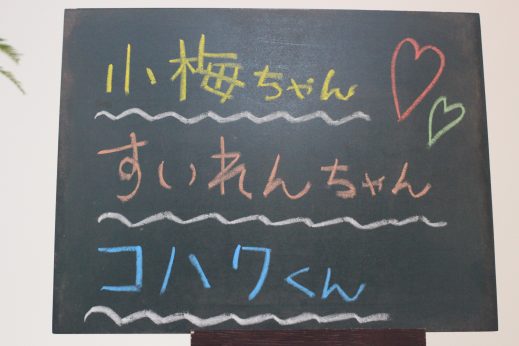 小梅ちゃん
すいれんちゃん
コハワくん